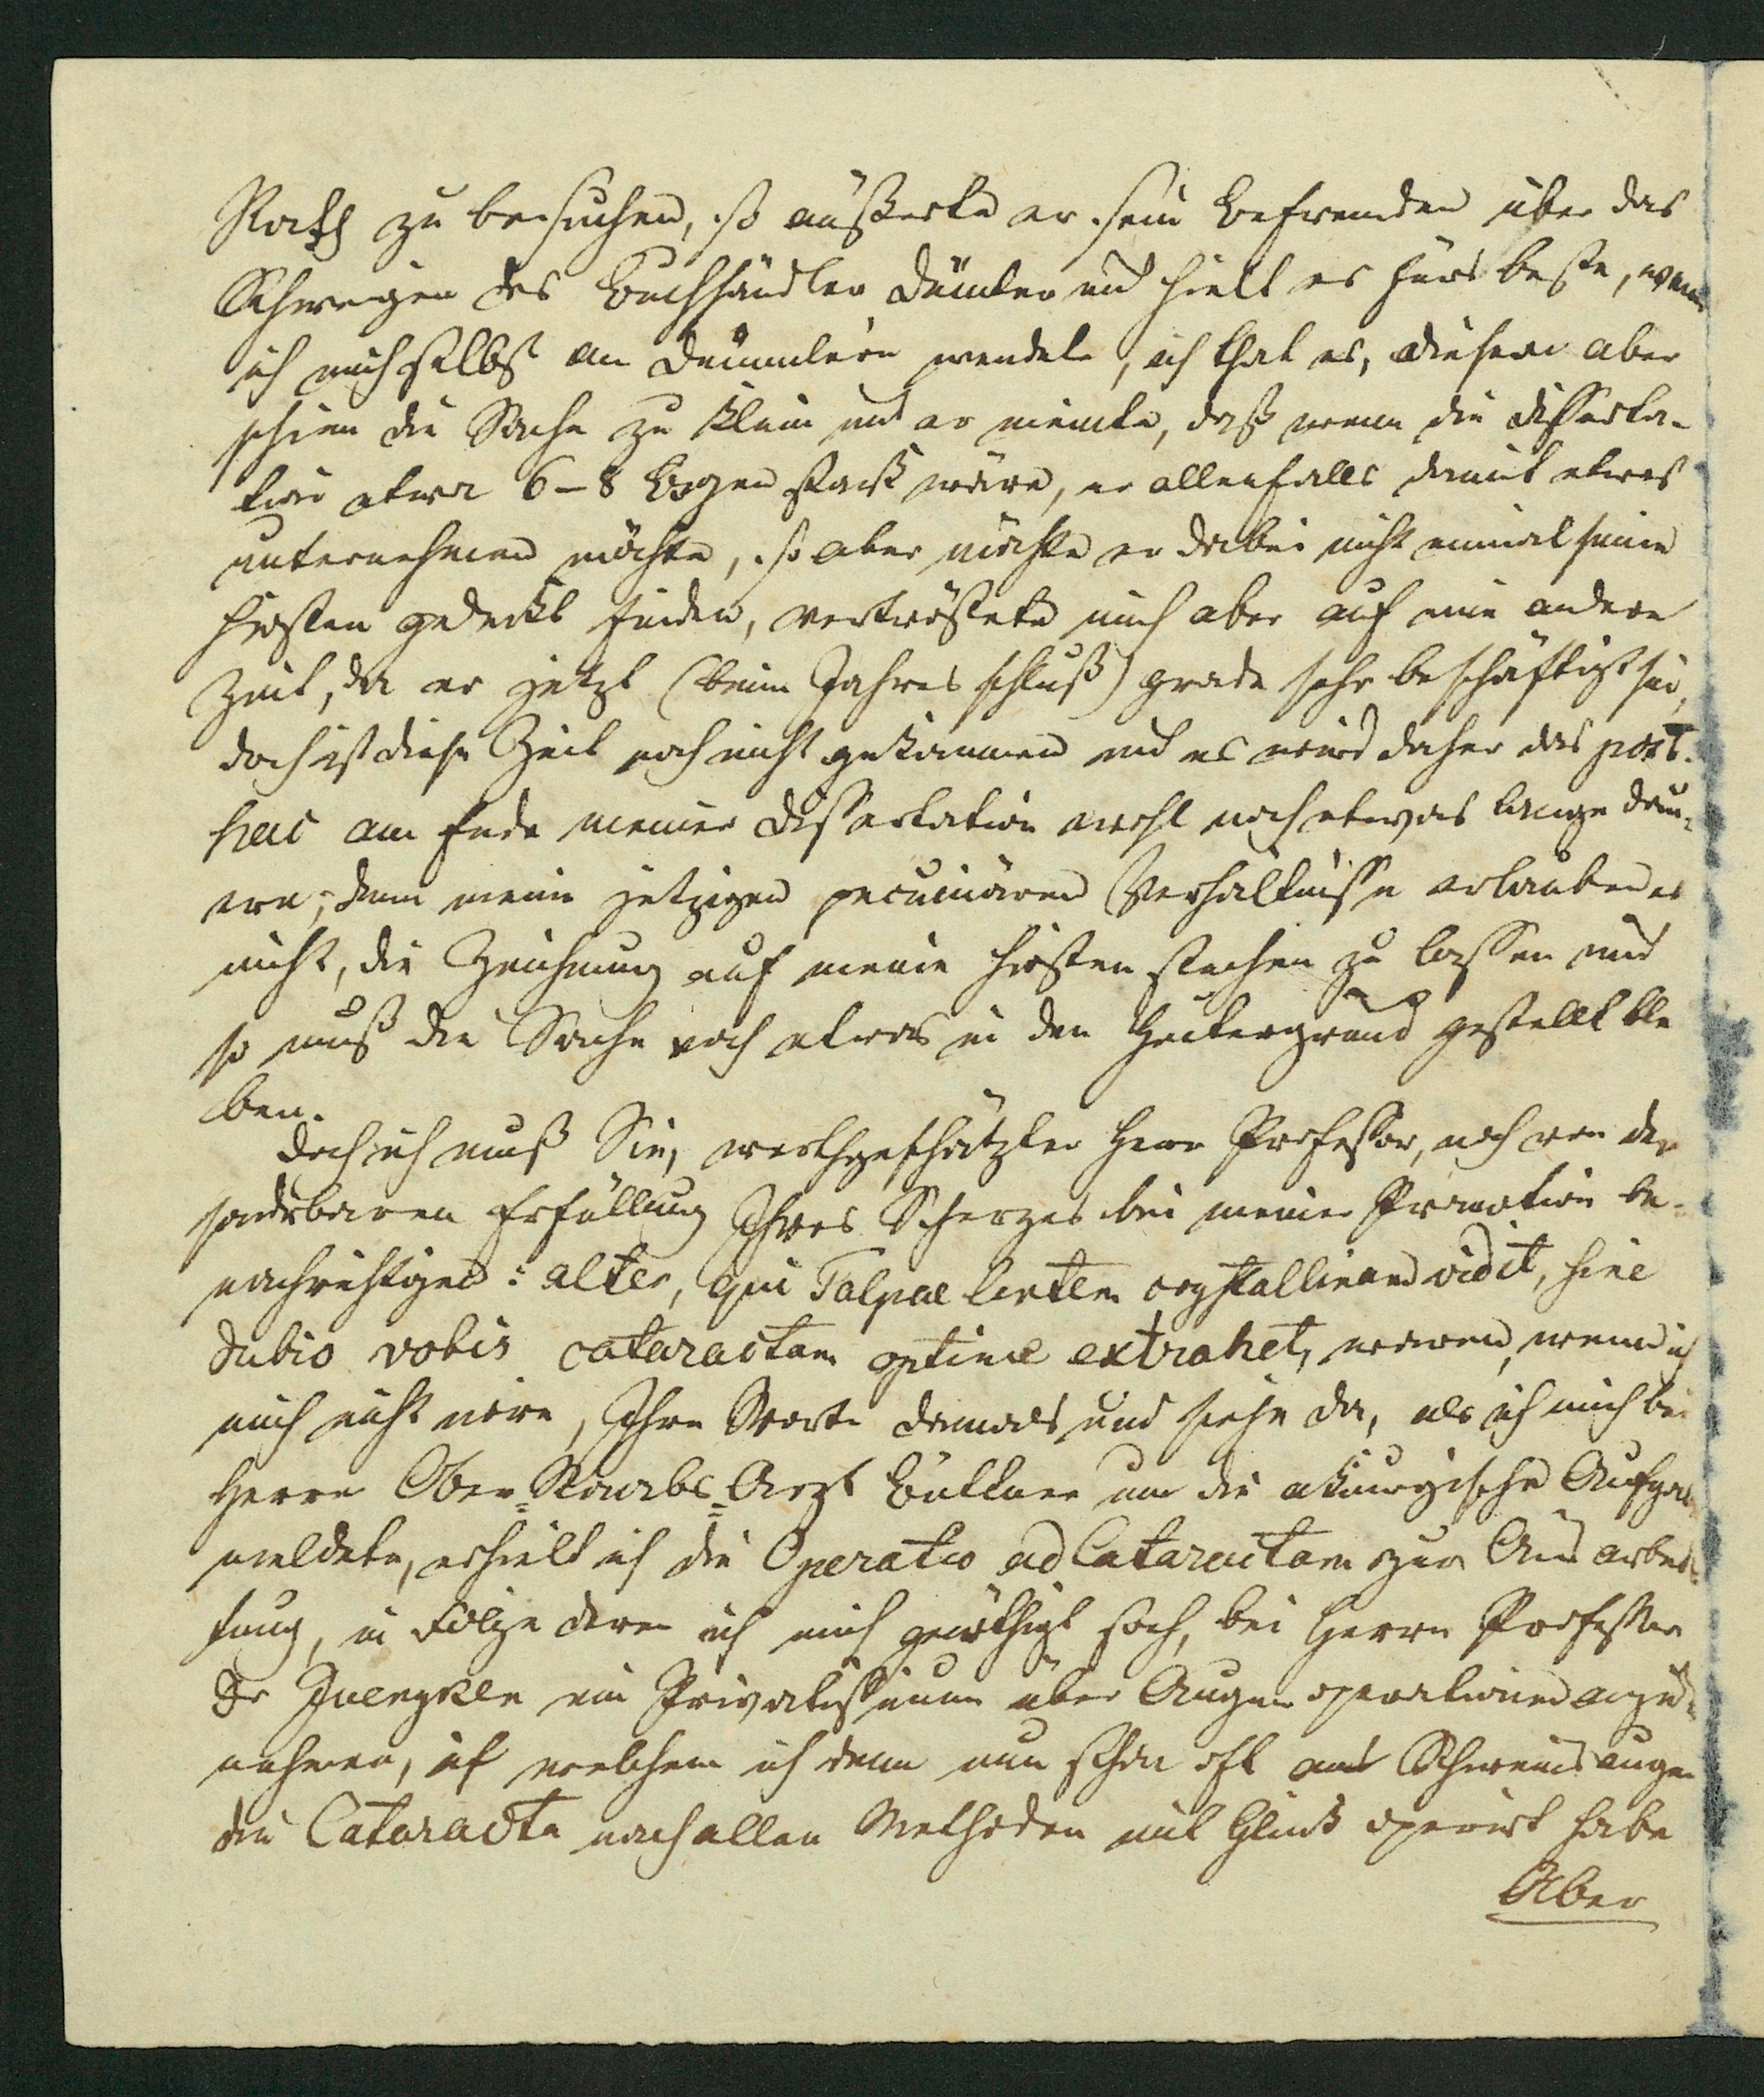 Rath zu besuchen, so äußerte er sein Befremden über das
Schweigen des Buchhändler Dümler und hielt es fürs beste, wenn
ich mich selbst an Dümmlern wendete, ich that es, diesem aber
schien die Sache zu klein und er meinte, daß wenn die Disserta-
tion etwa 6-8 Bogen stark wäre, er allenfalls damit etwas
unternehmen möchte, so aber möchte er dabei nicht einmal seine
Kosten gedeckt finden, vertröstete mich aber auf eine andere
Zeit, da er jetzt (beim Jahres schluß) grade sehr beschäftigt sei,
doch ist diese Zeit noch nicht gekommen und es wird daher das post-
hac am Ende meiner Dissertation wohl noch etwas lange dau-
ern; denn meine jetzigen pecuniären Verhältnisse erlauben es
nicht, die Zeichnung auf meine Kosten stechen zu lassen und
so muß die Sache noch etwas in den Hintergrund gestellt blei
ben.
Doch ich muß Sie, werthgeschätzter Herr Professor, noch von der
sonderbaren Erfüllung Ihres Scherzes bei meiner Promotion be-
nachrichtigen: alter, qui Talpae lentem crystallinam vidit, sine
dubio vobis cataractam optime extrahet, waren, wenn ich
mich nicht irre, Ihre Worte damals und siehe da, als ich mich bei
Herrn Ober-Staabs-Arzt Büttner um die akiurgische Aufgabe
meldete, erhielt ich die Operatio ad Cataractam zur Ausarbei-
tung, in Folge deren ich mich genöthigt sah, bei Herrn Professor
Dr Juengken ein Privatissimum über Augenoperationen anzu-
nehmen, in welchem ich denn nun schon oft am Schweinsaugen
die Cataracta nach allen Methoden mit Glück operirt habe
Aber